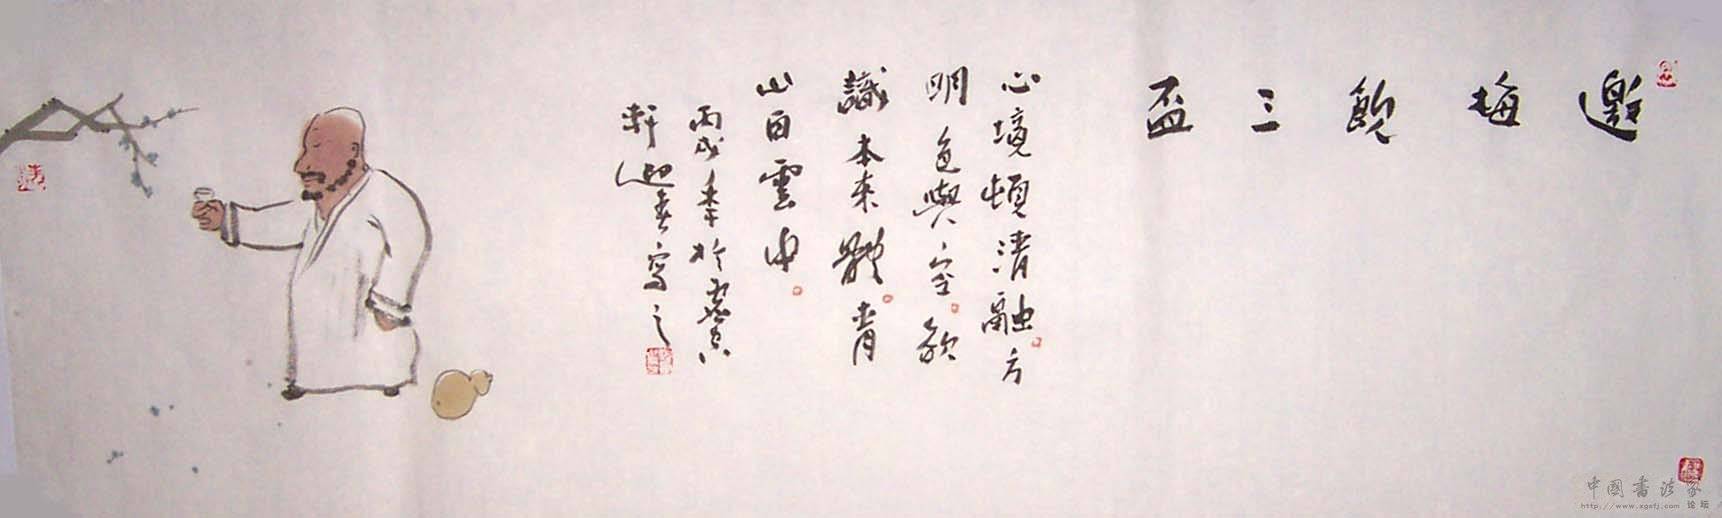 邀梅飲三盃
心境頓清融方
明色與空欲
識本来體青
山白雲中
丙戌年於
軒迎春寫之
中國書法家
论坛
http://www.xgsfj.com